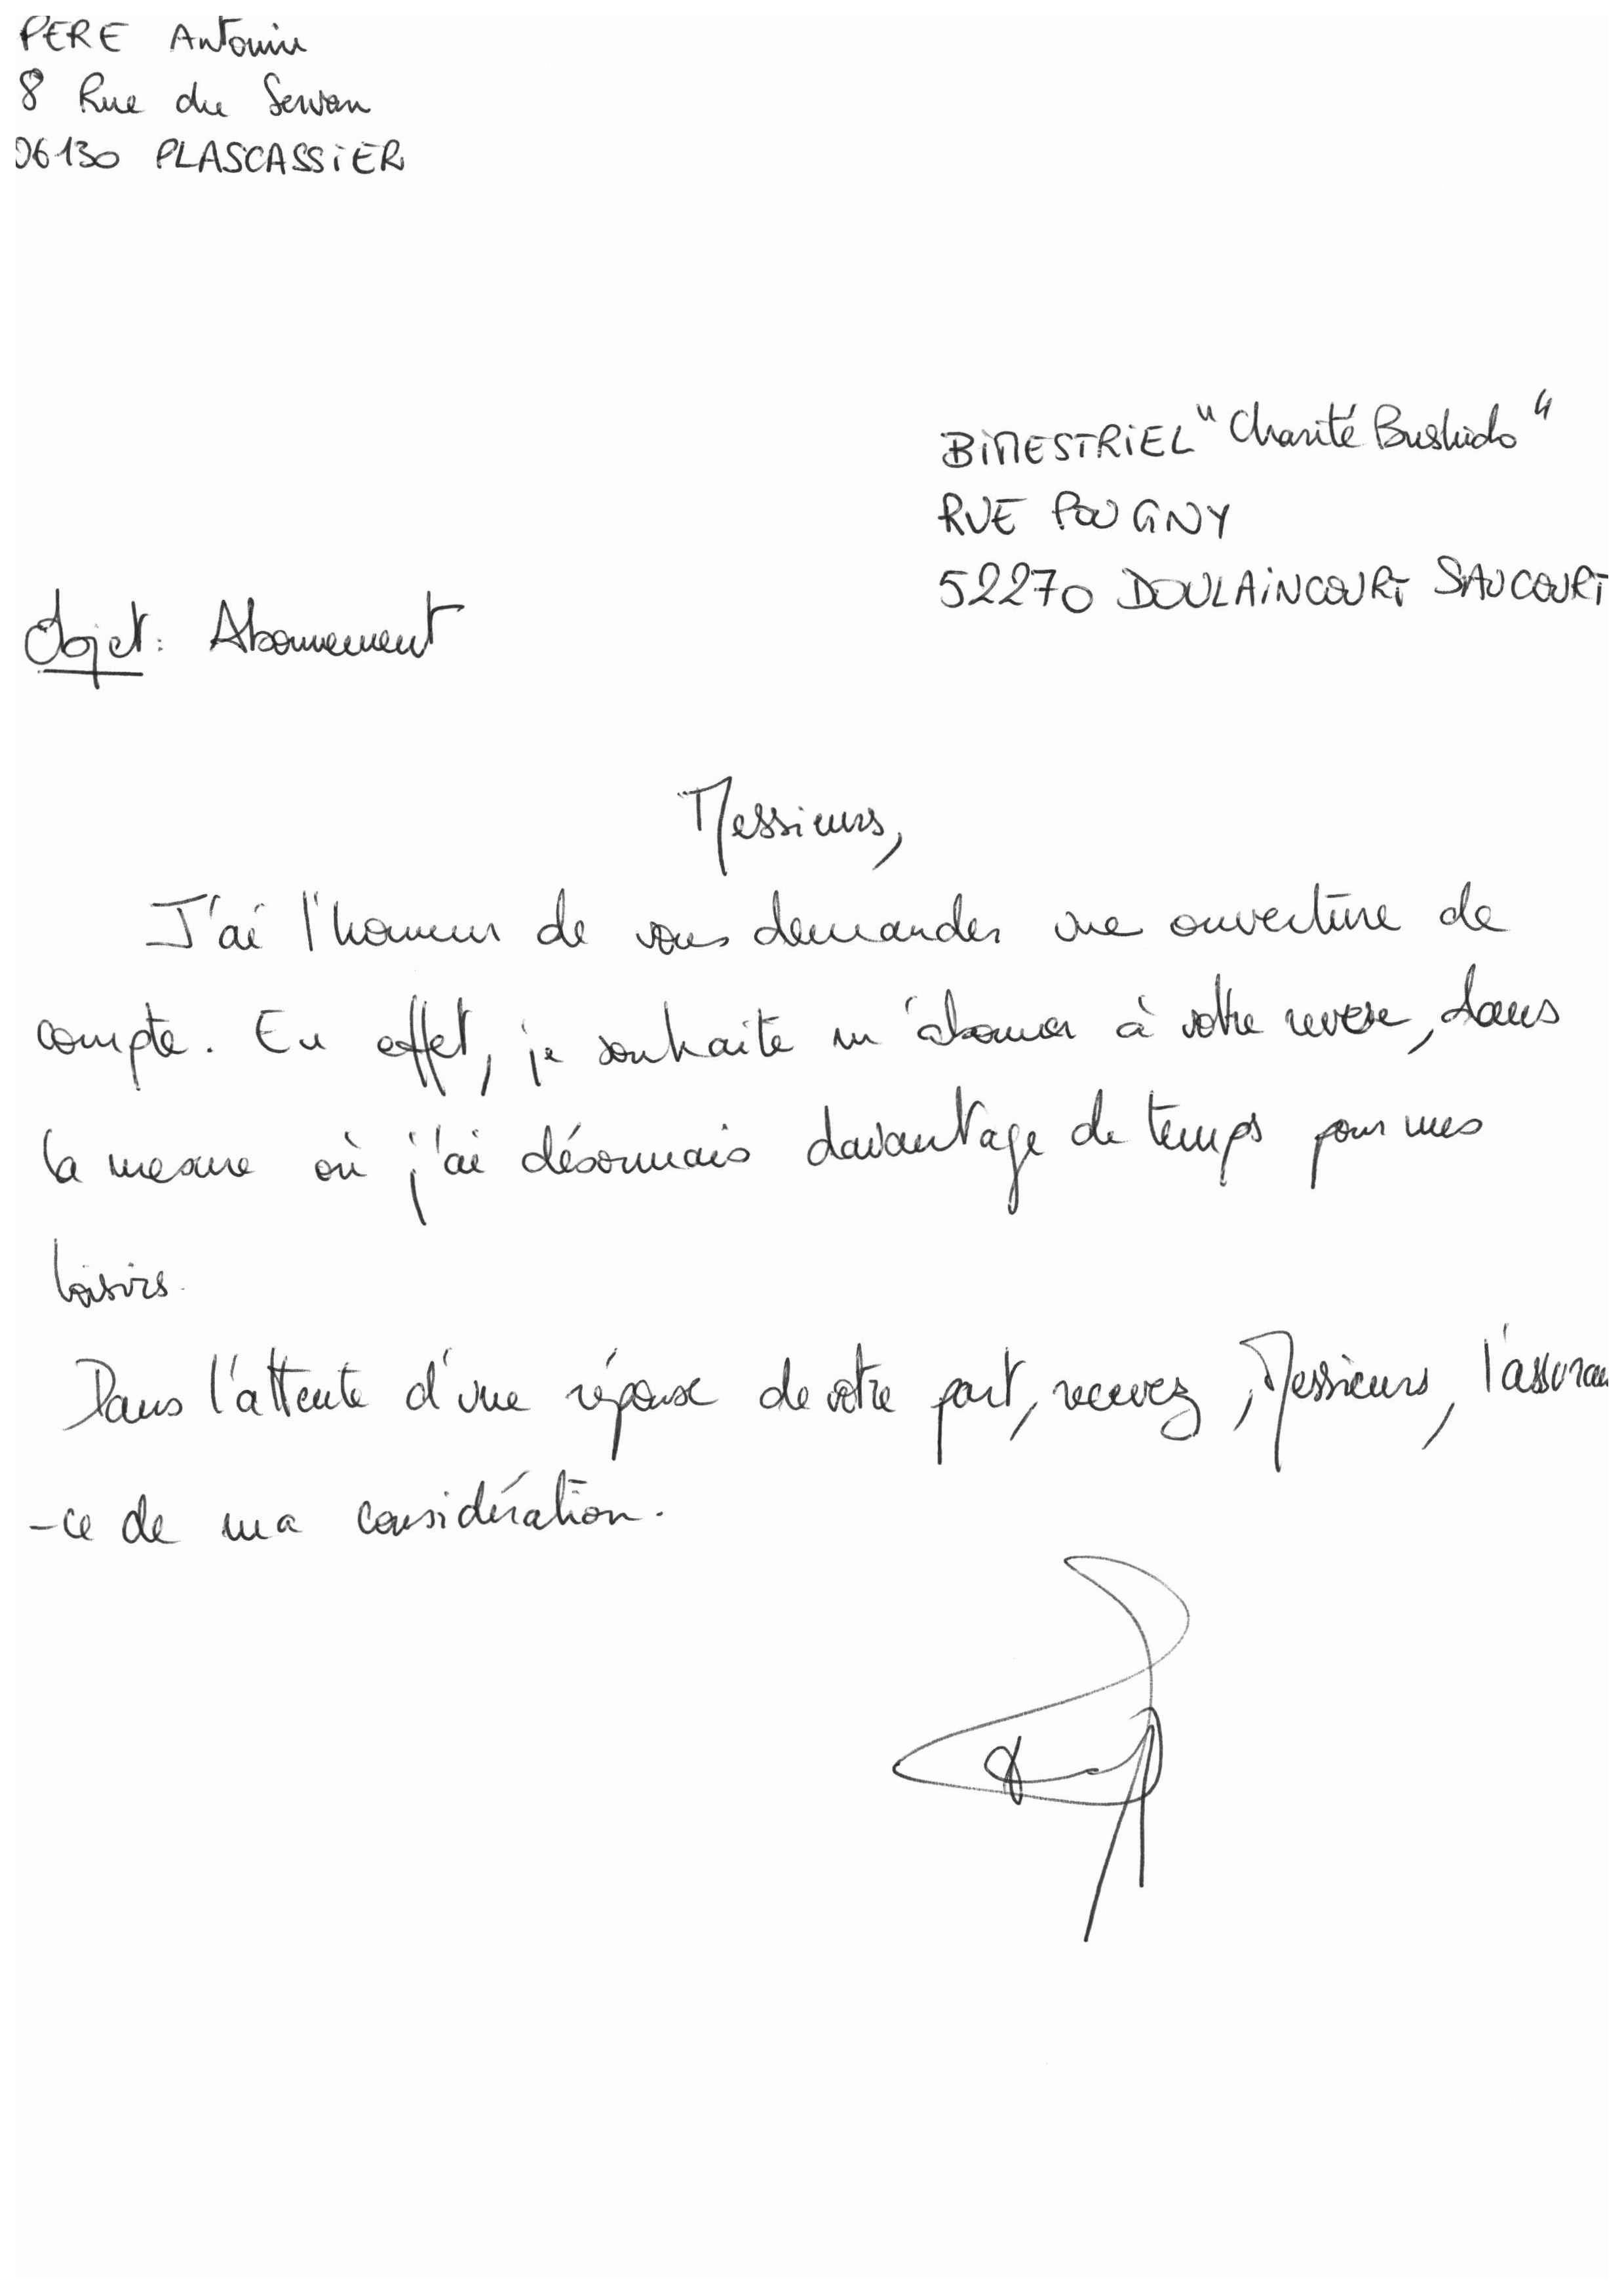 PERE Antonin
8 Rue du Servan
06130 PLASCASSIER
BIMESTRIEL "Charité Bushido"
RUE POUGNY
52270 DOULAINCOURT SAUCOURT
Objet : Abonnement
Messieurs,
J'ai l'honneur de vous demander une ouverture de
compte. En effet, je souhaite m'abonner à votre revue, dans
la mesure où j'ai désormais davantage de temps pour mes
loisirs.
Dans l'attente d'une réponse de votre part, recevez, Messieurs, l'assuran
-ce de ma considération.